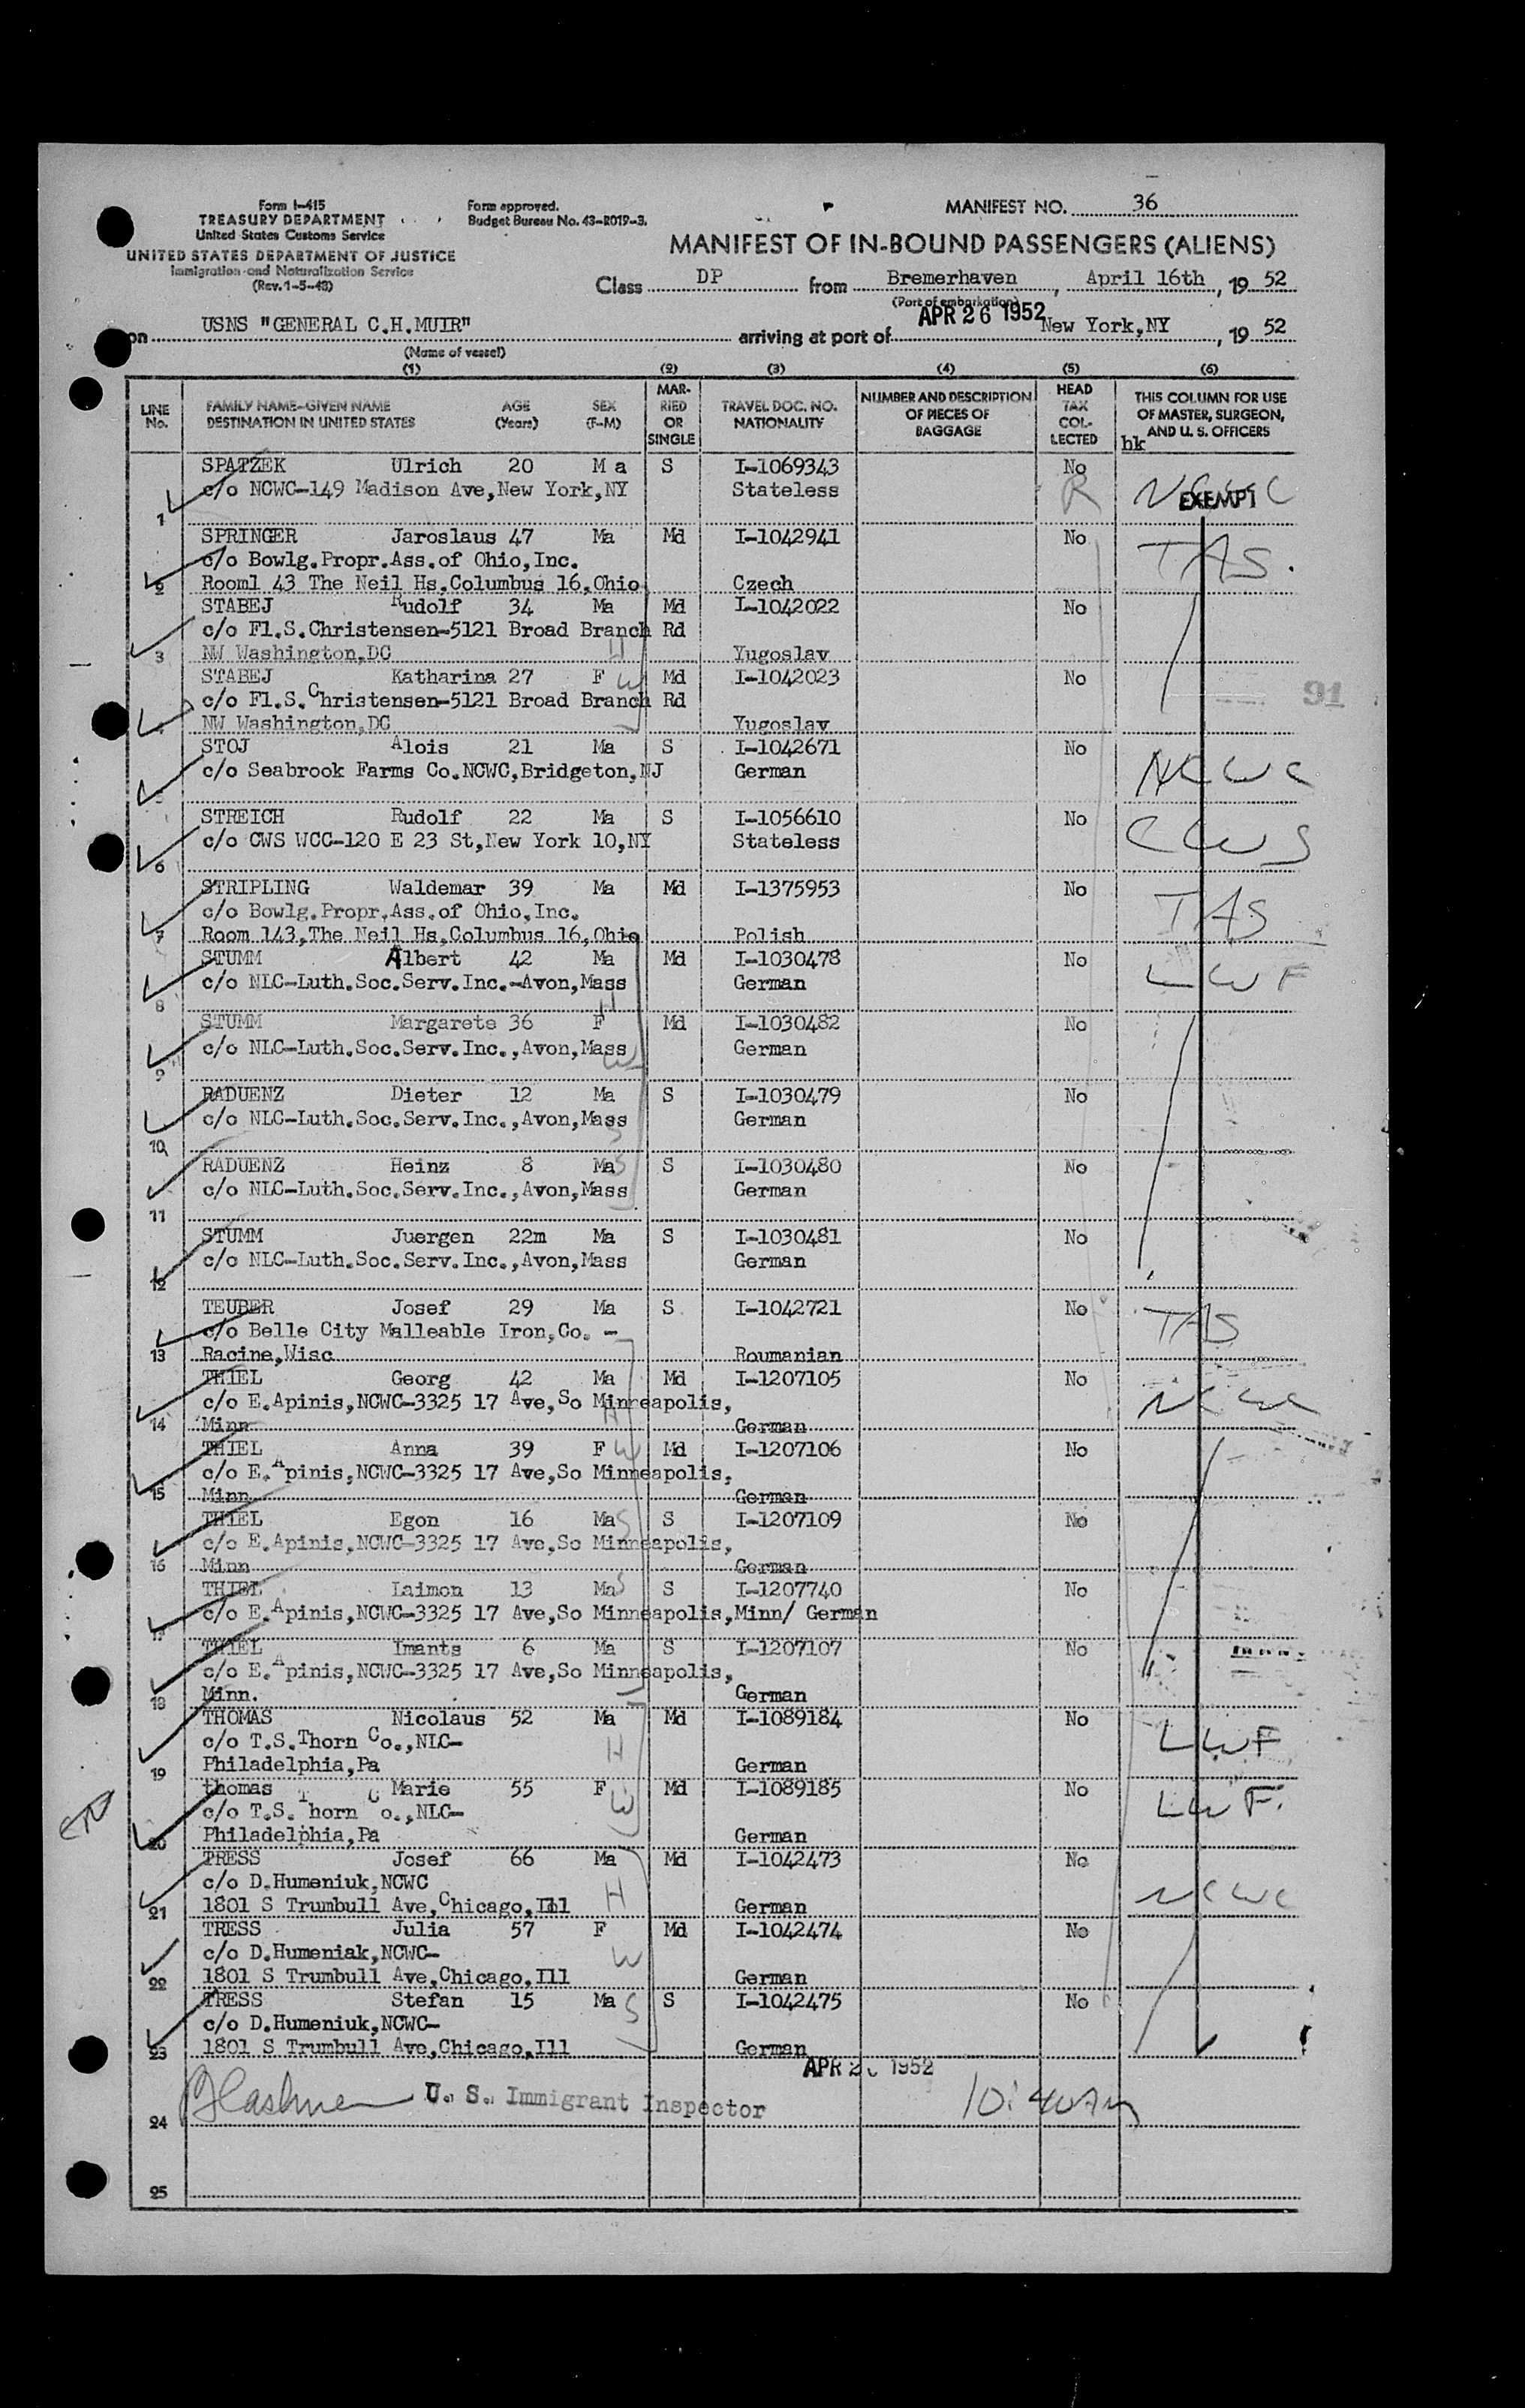 Form I-415
TREASURY DEPARTMENT
United States Customs Service
UNITED STATES DEPARTMENT OF JUSTICE
Immigration and Naturalization Service
(Rev. 1-5-48)
Form approved.
Budget Bureau No. 43-R019-3.
MANIFEST NO. 36
MANIFEST OF IN-BOUND PASSENGERS (ALIENS)
Class DP from Bremerhaven, April 16th, 19 52
(Port of embarkation)
on USNS "GENERAL C.H.MUIR" arriving at port of APR 26 1952 New York,NY, 19 52
(Name of vessel)
(1) (2) (3) (4) (5) (6)
LINE No. FAMILY NAME-GIVEN NAME DESTINATION IN UNITED STATES AGE (Years) SEX (F-M) MARRIED OR SINGLE TRAVEL DOC. NO. NATIONALITY NUMBER AND DESCRIPTION OF PIECES OF BAGGAGE HEAD TAX COLLECTED THIS COLUMN FOR USE OF MASTER, SURGEON, AND U. S. OFFICERS
hk
SPATZEK Ulrich 20 M a S I-1069343 No
c/o NCWC-149 Madison Ave,New York,NY Stateless R EXEMPT
1
SPRINGER Jaroslaus 47 Ma Md I-1042941 No
c/o Bowlg.Propr.Ass.of Ohio,Inc. TAS.
2 Room1 43 The Neil Hs.Columbus 16,Ohio Czech
STABEJ Rudolf 34 Ma Md I-1042022 No
c/o Fl.S.Christensen-5121 Broad Branch Rd
3 NW Washington,DC H Yugoslav
STABEJ Katharina 27 F W Md I-1042023 No
c/o Fl.S.Christensen-5121 Broad Branch Rd 91
NW Washington,DC Yugoslav
STOJ Alois 21 Ma S I-1042671 No
c/o Seabrook Farms Co.NCWC,Bridgeton,NJ German NCWC
5
STREICH Rudolf 22 Ma S I-1056610 No
c/o CWS WCC-120 E 23 St,New York 10,NY Stateless CWS
6
STRIPLING Waldemar 39 Ma Md I-1375953 No
c/o Bowlg.Propr.Ass.of Ohio,Inc. TAS
7 Room 143,The Neil Hs.Columbus 16,Ohio Polish
STUMM Albert 42 Ma Md I-1030478 No LWF
c/o NLC-Luth.Soc.Serv.Inc.-Avon,Mass German
8 H
STUMM Margarete 36 F Md I-1030482 No
c/o NLC-Luth.Soc.Serv.Inc.,Avon,Mass German
9 W
RADUENZ Dieter 12 Ma S I-1030479 No
c/o NLC-Luth.Soc.Serv.Inc.,Avon,Mass German
10 S
RADUENZ Heinz 8 Ma S S I-1030480 No
c/o NLC-Luth.Soc.Serv.Inc.,Avon,Mass German
11
STUMM Juergen 22m Ma S I-1030481 No
c/o NLC-Luth.Soc.Serv.Inc.,Avon,Mass German
12
TEUBER Josef 29 Ma S I-1042721 No TAS
c/o Belle City Malleable Iron,Co. -
13 Racine,Wisc Roumanian
THIEL Georg 42 Ma Md I-1207105 No
c/o E.Apinis,NCWC-3325 17 Ave,So Minneapolis, NCWC
14 Minn H German
THIEL Anna 39 F W Md I-1207106 No
c/o E.Apinis,NCWC-3325 17 Ave,So Minneapolis,
15 Minn German
THIEL Egon 16 Ma S S I-1207109 No
c/o E.Apinis,NCWC-3325 17 Ave,So Minneapolis,
16 Minn German
THIEL Laimon 13 Ma S S I-1207740 No
c/o E.Apinis,NCWC-3325 17 Ave,So Minneapolis,Minn/ German
17
THIEL Imants 6 Ma S I-1207107 No
c/o E.Apinis,NCWC-3325 17 Ave,So Minneapolis,
18 Minn. German
THOMAS Nicolaus 52 Ma Md I-1089184 No
c/o T.S.Thorn Co.,NLC- H LWF
19 Philadelphia,Pa German
thomas Marie 55 F Md I-1089185 No
c/o T.S.Thorn Co.,NLC- W LWF.
20 Philadelphia,Pa German
TRESS Josef 66 Ma Md I-1042473 No
c/o D.Humeniuk,NCWC H NCWC
21 1801 S Trumbull Ave,Chicago,Ill German
TRESS Julia 57 F Md I-1042474 No
c/o D.Humeniak,NCWC- W
22 1801 S Trumbull Ave,Chicago,Ill German
TRESS Stefan 15 Ma S S I-1042475 No
c/o D.Humeniuk,NCWC-
23 1801 S Trumbull Ave,Chicago,Ill German
APR 26 1952
U. S. Immigrant Inspector 10:40AM
24
25